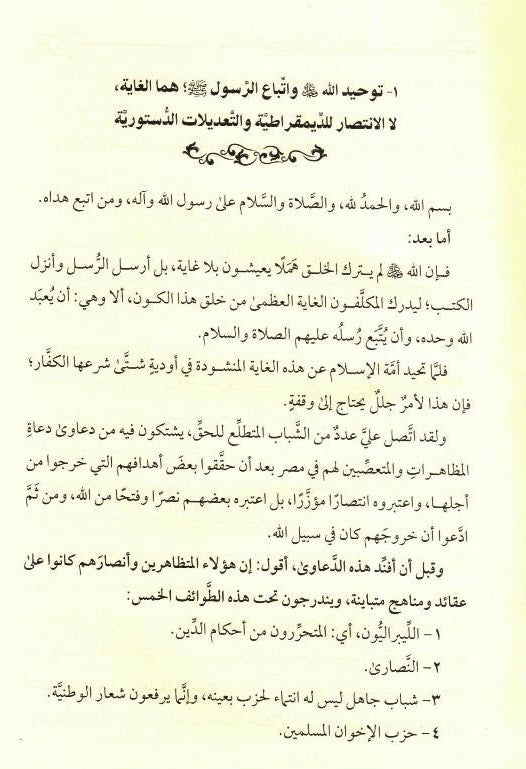 ١- توحيد الله ﷻ واتِّباع الرَّسول ﷺ؛ هما الغاية،
لا الانتصار للدِّيمقراطيَّة والتَّعديلات الدُّستوريَّة
بسم الله، والحمدُ لله، والصَّلاة والسَّلام على رسول الله وآله، ومن اتبع هداه.
أما بعد:
فـإن الله ﷻ لم يـترك الخلـق هَمَلًا يعيشـون بـلا غاية، بل أرسـل الرُّسـل وأنزل
الكتـب؛ ليدرك المكلَّفـون الغاية العظمىٰ من خلق هذا الكـون، ألا وهي: أن يُعبَد
الله وحده، وأن يُتَّبَع رُسلُه عليهم الصلاة والسلام.
فلمَّا تحيد أمَّة الإسـلام عن هذه الغاية المنشـودة في أوديةٍ شـتَّىٰ شرعها الكفَّار؛
فإن هذا لأمرٌ جللٌ يحتاج إلىٰ وقفةٍ.
ولقد اتَّصل عليَّ عددٌ من الشَّباب المتطلِّع للحقِّ، يشتكون فيه من دعاوىٰ دعاةِ
المظاهـراتِ والمتعصِّبين لهم في مصر بعد أن حقَّقوا بعضَ أهدافهم التي خرجوا من
أجلهـا، واعتبروه انتصارًا مؤزَّرًا، بل اعتبره بعضهـم نصرًا وفتحًا من الله، ومن ثَمَّ
ادَّعوا أن خروجَهم كان في سبيل الله.
وقبل أن أفنِّد هذه الدَّعاوىٰ، أقول: إن هؤلاء المتظاهرين وأنصارَهم كانوا علىٰ
عقائد ومناهج متباينة، ويندرجون تحت هذه الطَّوائف الخمس:
١- اللِّيبراليُّون، أي: المتحرِّرون من أحكام الدِّين.
٢- النَّصارىٰ.
٣- شباب جاهل ليس له انتماء لحزب بعينه، وإنَّما يرفعون شعار الوطنيَّة.
٤- حزب الإخوان المسلمين.